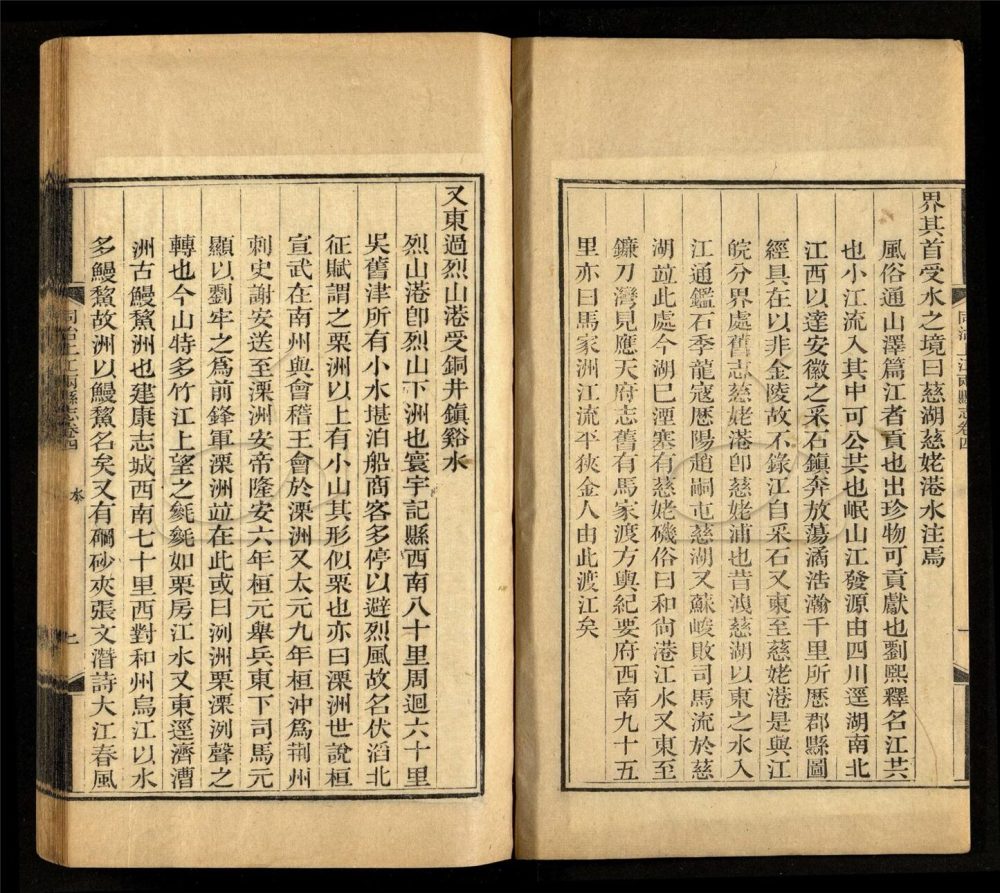 界其首受水之境曰慈湖慈姥港水注焉
風俗通山澤篇江者貢也出珍物可貢獻也劉熙釋名江共
也小江流入其中可公共也岷山江發源由四川逕湖南北
江西以達安徽之采石鎮奔放蕩潏浩瀚千里所歷郡縣圖
經具在以非金陵故不錄江自采石又東至慈姥港是與江
皖分界處舊志慈姥港卽慈姥浦也昔洩慈湖以東之水入
江通鑑石季龍寇歷陽趙嗣屯慈湖又蘇峻敗司馬流於慈
湖竝此處今湖巳湮塞有慈姥磯俗曰和尙港江水又東至
鐮刀灣見應天府志舊有馬家渡方輿紀要府西南九十五
里亦曰馬家洲江流平狹金人由此渡江矣
同治上江兩縣志卷四
又東過烈山港受銅井鎮谿水
烈山港卽烈山下洲也寰宇記縣西南八十里周迴六十里
吳舊津所有小水堪泊船商客多停以避烈風故名伏滔北
征賦謂之栗洲以上有小山其形似栗也亦曰溧洲世說桓
宣武在南州與會稽王會於溧洲又太元九年桓沖爲荆州
刺史謝安送至溧洲安帝隆安六年桓元舉兵東下司馬元
顯以劉牢之爲前鋒軍溧洲竝在此或曰洌洲栗溧洌聲之
轉也今山特多竹江上望之毿毿如栗房江水又東逕濟漕
洲古鰻鮺洲也建康志城西南七十里西對和州烏江以水
多鰻鮺故洲以鰻鮺名矣又有硇砂夾張文潛詩大江春風
同治上江兩縣志卷四
七